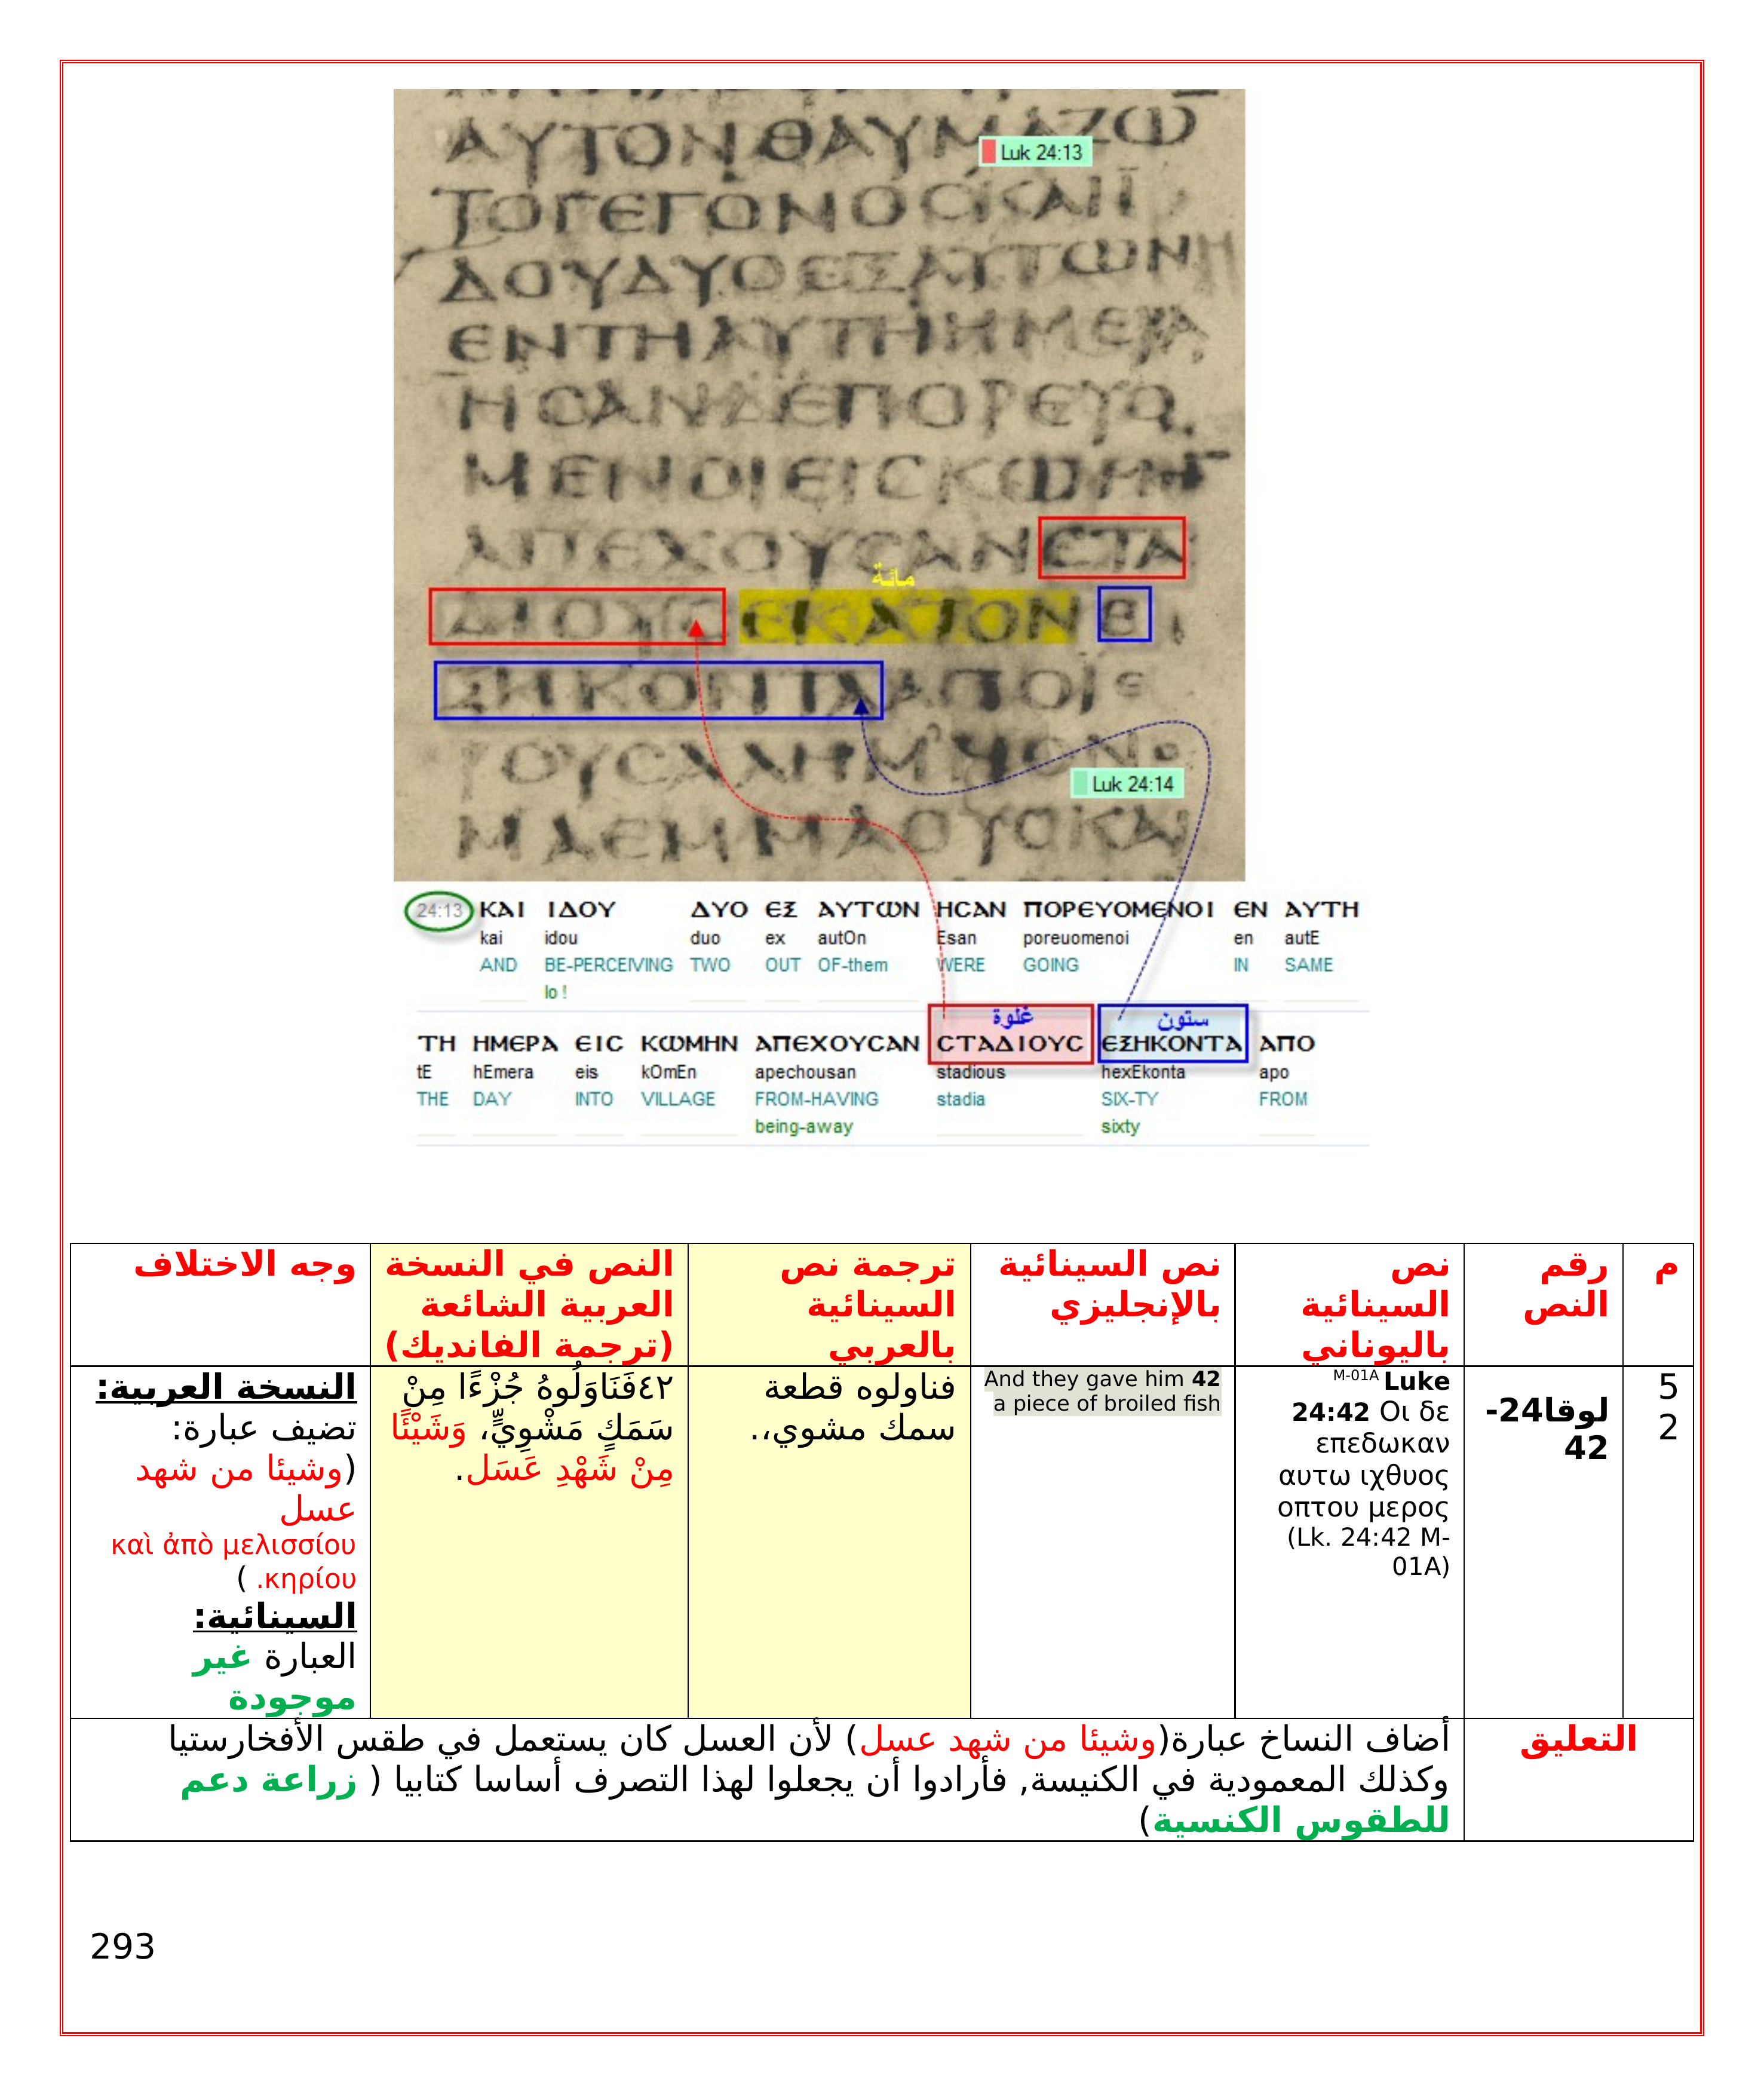 ΑΥΤΟΝΘΑΥΜΑΖΩ
Luk 24:13
ΤΟΓΕΓΟΝΟΣΚΑΙΙ
ΔΟΥΔΥΟΕΞΑΥΤΩΝΗ
ΕΝΤΗΑΥΤΗΗΜΕΡΑ
ΗΣΑΝΔΕΠΟΡΕΥΟ
ΜΕΝΟΙΕΙΣΚΩΜΗ
ΑΠΕΧΟΥΣΑΝΣΤΑ
مائة
ΔΙΟΥΣ ΕΚΑΤΟΝ Ε
ΞΗΚΟΝΤΑΑΠΟΙΕ
ΡΟΥΣΑΛΗΜ
Luk 24:14
ΜΑΕΜΜΑΟΥΣΚΑΙ
24:13 ΚΑΙ ΙΔΟΥ ΔΥΟ ΕΞ ΑΥΤΩΝ ΗϹΑΝ ΠΟΡΕΥΟΜΕΝΟΙ ΕΝ ΑΥΤΗ
kai idou duo ex autOn Esan poreuomenoi en autE
AND BE-PERCEIVING TWO OUT OF-them WERE GOING IN SAME
lo !
غلوة ستون
ΤΗ ΗΜΕΡΑ ΕΙϹ ΚΩΜΗΝ ΑΠΕΧΟΥϹΑΝ ϹΤΑΔΙΟΥϹ ΕΞΗΚΟΝΤΑ ΑΠΟ
tE hEmera eis kOmEn apechousan stadious hexEkonta apo
THE DAY INTO VILLAGE FROM-HAVING stadia SIX-TY FROM
being-away sixty
م
رقم
النص
نص
السينائية
باليوناني
نص السينائية
بالإنجليزي
ترجمة نص
السينائية
بالعربي
النص في النسخة
العربية الشائعة
(ترجمة الفانديك)
وجه الاختلاف
5
2
لوقا24-
42
M-01A Luke
24:42 Οι δε
επεδωκαν
αυτω ιχθυος
οπτου μερος
(Lk. 24:42 M-
01A)
And they gave him 42
a piece of broiled fish
فناولوه قطعة
سمك مشوي،.
٤٢فَنَاوَلُوهُ جُزْءًا مِنْ
سَمَكٍ مَشْوِيٍّ، وَشَيْئًا
مِنْ شَهْدِ عَسَل.
النسخة العربية:
تضيف عبارة:
(وشيئا من شهد
عسل
καὶ ἀπὸ μελισσίου
κηρίου. )
السينائية:
العبارة غير
موجودة
التعليق
أضاف النساخ عبارة(وشيئا من شهد عسل) لأن العسل كان يستعمل في طقس الأفخارستيا
وكذلك المعمودية في الكنيسة, فأرادوا أن يجعلوا لهذا التصرف أساسا كتابيا ( زراعة دعم
للطقوس الكنسية)
293